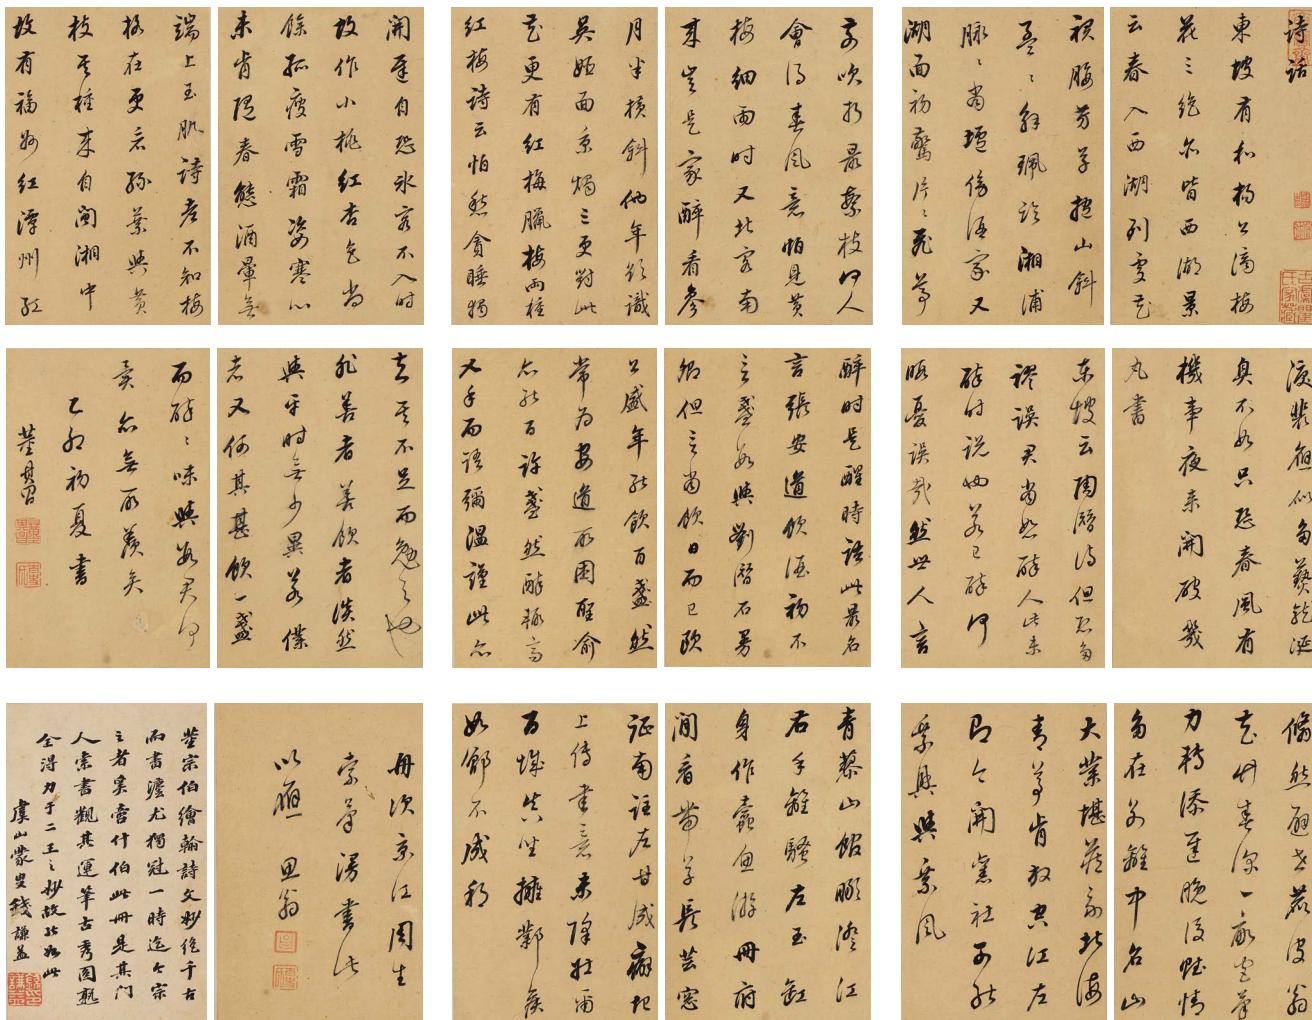 詩話
東坡有和楊公濟梅
花三絕亦皆西湖景
云春入西湖到處花
裙腰芳草抱山斜
盈盈解珮臨湘浦
脉脉當壚傍酒家又
湖面初驚片片飛尊
前吹折最繁枝何人
會得春風意怕見黃
梅細雨時又北客南
來豈是家醉看參
月半橫斜他年欲識
吳姬面秉燭三更對此
花更有紅梅臘梅兩種
紅梅詩云怕愁貪睡獨
開遲自恐冰容不入時
故作小桃紅杏色尚
餘孤瘦雪霜姿寒心
未肯隨春態酒暈無
端上玉肌詩老不知梅
格在更看綠葉與黃
枝其種來自閩湘中
故有福州紅潭州紅
臭不如只恐春風有
機事夜來開破幾
丸書
東坡云陶潛詩但恐多
謬誤君當恕醉人此未
醉時說也若已醉何
暇憂誤哉然世人言
醉時是醒時語此最名
言張安道飲酒初不
言盞數與劉潛石曼
卿但言當飲日而已歐
公盛年能飲百盞然
常為安道所困聖俞
亦能百許盞然醉輒高
叉手而語彌溫謹此亦
其不足而勉之也
非善者善飲者淡然
與平時無少異若僕
者又何其甚飲一盞
而醉醉味與數君何
異亦無所羨矣
乙卯初夏書
董其昌
翛然翁
花竹春深一畝宮筆
力轉添遲晚後賦情
多在別離中名山
大業堪藏家北海
青尊肯放空江左
即今開黨社可能
乘興與乘風
青藜山館瞰澄江
右手離騷左玉缸
身作蠹魚游冊府
澗香帶草長芸窗
証南註左甘成癖圯
上傳書意未降壯甫
百城真坐擁鄴侯
如鄴不成移
舟次京江周生
索筆漫書此
以應 思翁
董宗伯繪翰詩文妙絕千古
而書法尤獨冠一時迄今宗
之者奚啻什伯此冊是其門
人索書觀其運筆古秀圓熟
全得力于二王之妙故能如此
虞山蒙叟錢謙益